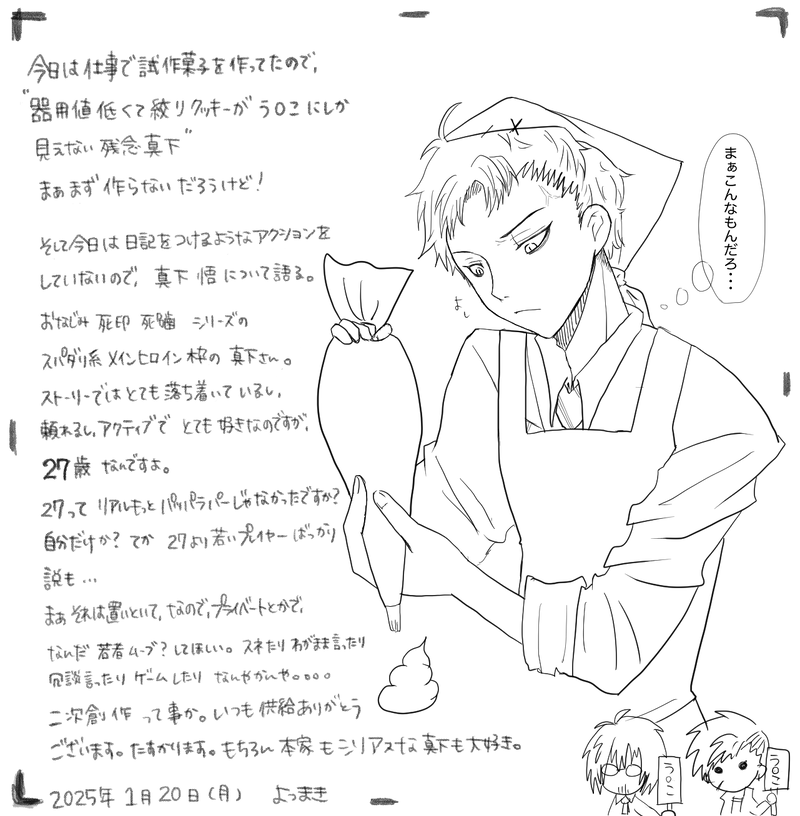 今日は仕事で試作菓子を作ってたので、
"器用値低くて絞りクッキーがうOこにしか
見えない残念真下"
まぁまず作らないだろうけど!
そして今日は日記をつけるようなアクションを
していないので、真下悟について語る。
おなじみ 死印 死噛 シリーズの
スパダリ系メインヒロイン枠の 真下さん。
ストーリーではとても落ち着いているし、
頼れるし、アクティブで とても好きなのですが、
27歳 なんですよ。
27って リアルもっとパッパラパーじゃなかったですか?
自分だけか? てか 27より若いプレイヤーばっかり
説も…
まぁ それは置いといて、なので、プライベートとかで、
なんだ 若者ムーブ?してほしい。スネたり わがまま言ったり
冗談言ったり ゲームしたり なんやかんや。。。。
二次創作 って事か。いつも供給ありがとう
ございます。たすかります。もちろん 本家もシリアスな真下も大好き。
2025年 1月20日(月) よつまき
まぁこんなもんだろ…
よし
うOこ
うOこ